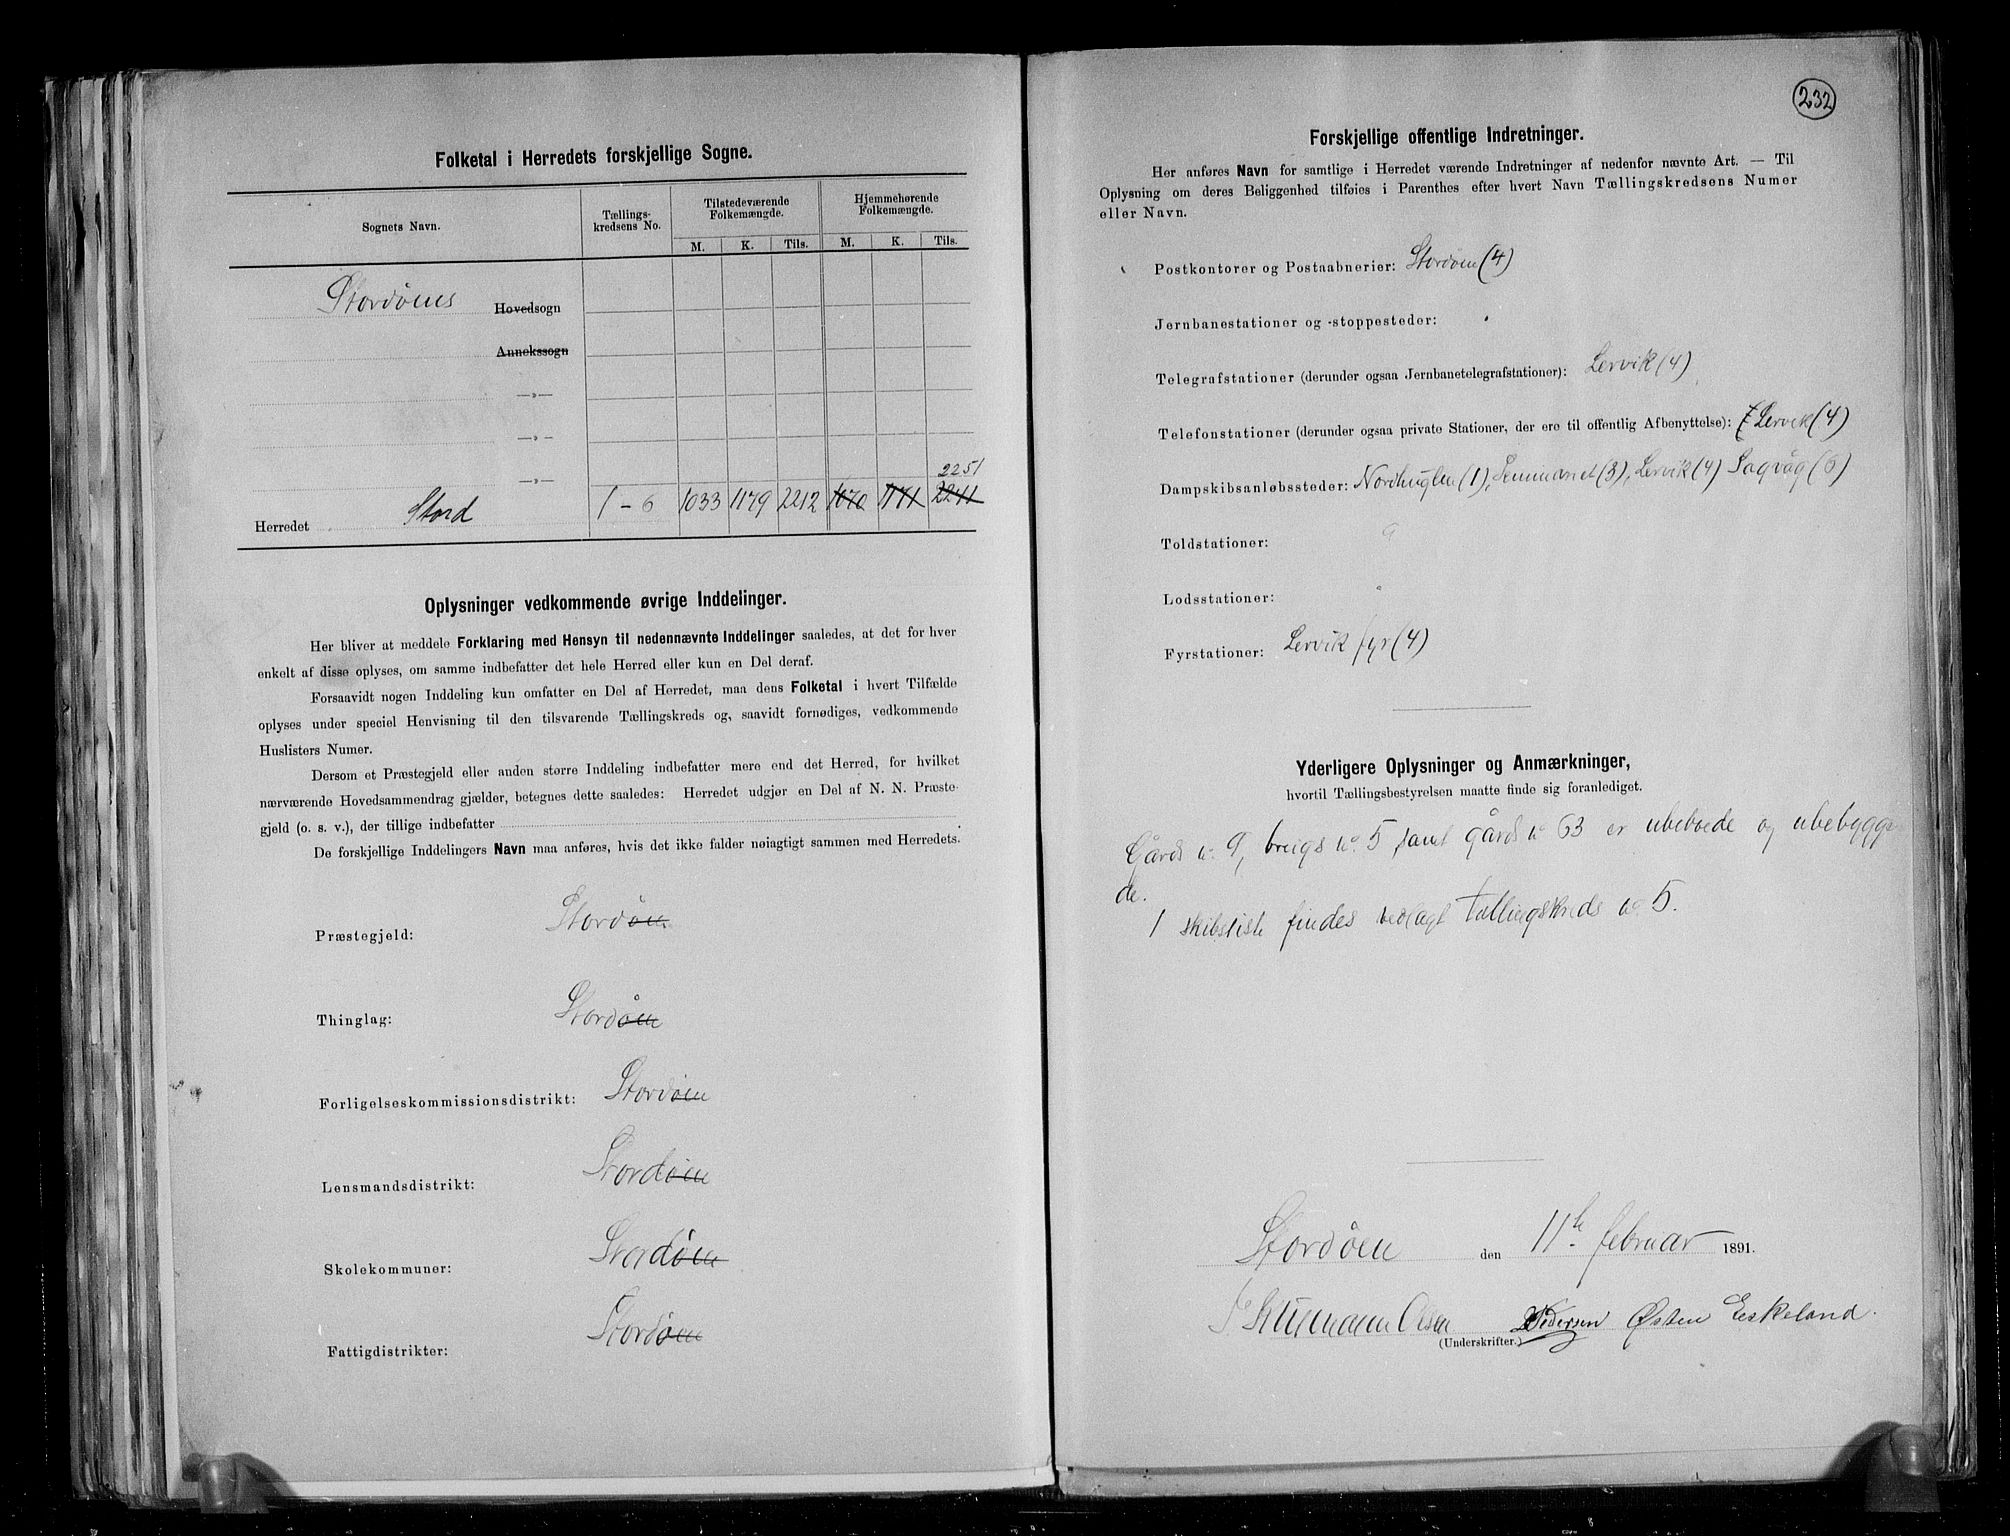 Folketal i Herredets forskjellige Sogne.
Sognets Navn.
Tællings-
kredsens No.
Tilstedeværende
Folkemængde.
Hjemmehørende
Folkemængde.
M. K. Tils. M. K. Tils.
Stordøens Hovedsogn
Annekssogn
—»—
—»—
—»—
2251
Herredet Stord 1 - 6 1033 1179 2212 1070 1171 2241
Oplysninger vedkommende øvrige Inddelinger.
Her bliver at meddele Forklaring med Hensyn til nedennævnte Inddelinger saaledes, at det for hver
enkelt af disse oplyses, om samme indbefatter det hele Herred eller kun en Del deraf.
Forsaavidt nogen Inddeling kun omfatter en Del af Herredet, maa dens Folketal i hvert Tilfælde
oplyses under speciel Henvisning til den tilsvarende Tællingskreds og, saavidt fornødiges, vedkommende
Huslisters Numer.
Dersom et Præstegjeld eller anden større Inddeling indbefatter mere end det Herred, for hvilket
nærværende Hovedsammendrag gjælder, betegnes dette saaledes: Herredet udgjør en Del af N. N. Præste-
gjeld (o. s. v.), der tillige indbefatter
De forskjellige Inddelingers Navn maa anføres, hvis det ikke falder nøiagtigt sammen med Herredets.
Præstegjeld: Stordøen
Thinglag: Stordøen
Forligelseskommissionsdistrikt: Stordøen
Lensmandsdistrikt: Stordøen
Skolekommuner: Stordøen
Fattigdistrikter: Stordøen
232
Forskjellige offentlige Indretninger.
Her anføres Navn for samtlige i Herredet værende Indretninger af nedenfor nævnte Art. — Til
Oplysning om deres Beliggenhed tilføies i Parenthes efter hvert Navn Tællingskredsens Numer
eller Navn.
Postkontorer og Postaabnerier: Stordøen (4)
Jernbanestationer og -stoppesteder:
Telegrafstationer (derunder ogsaa Jernbanetelegrafstationer): Lervik (4)
Telefonstationer (derunder ogsaa private Stationer, der ere til offentlig Afbenyttelse): Lervik (4)
Dampskibsanløbssteder: Nordhuglen (1), (3), Lervik (4) Sagvåg (6)
Toldstationer:
Lodsstationer:
Fyrstationer: Lervik fyr (4)
Yderligere Oplysninger og Anmærkninger,
hvortil Tællingsbestyrelsen maatte finde sig foranlediget.
Gårds no. 9, brugs no. 5, samt gårds no 63 er ubeboede og ubebygge-
de.
1 skibsliste findes vedlagt tællingskreds no. 5.
Stordøen den 11te februar 1891.
Olsen Pedersen Østen Eskeland.
(Underskrifter.)